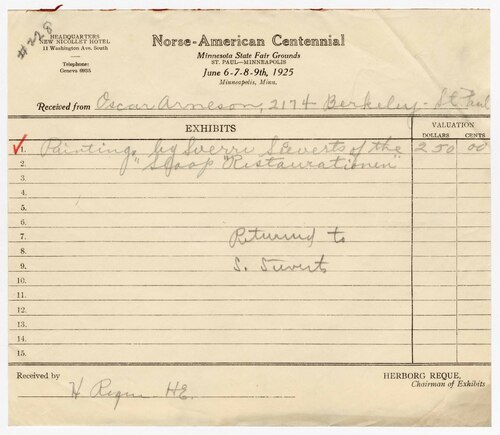 # 228
HEADQUARTERS
NEW NICOLLET HOTEL
11 Washington Ave. South
Telephone:
Geneva 6935
Norse-American Centennial
Minnesota State Fair Grounds
ST. PAUL—MINNEAPOLIS
June 6-7-8-9th, 1925
Minneapolis, Minn.
Received from Oscar Arneson, 2174 Berkeley - St. Paul
EXHIBITS
VALUATION
DOLLARS CENTS
1. Painting by Sverri Sieverts of the 250 00
2. "Sloop "Restaurationen"
3.
4.
5.
6.
7. Returned to
8.
9. S. Sieverts
10.
11.
12.
13.
14.
15.
Received by H Reque HE
HERBORG REQUE,
Chairman of Exhibits